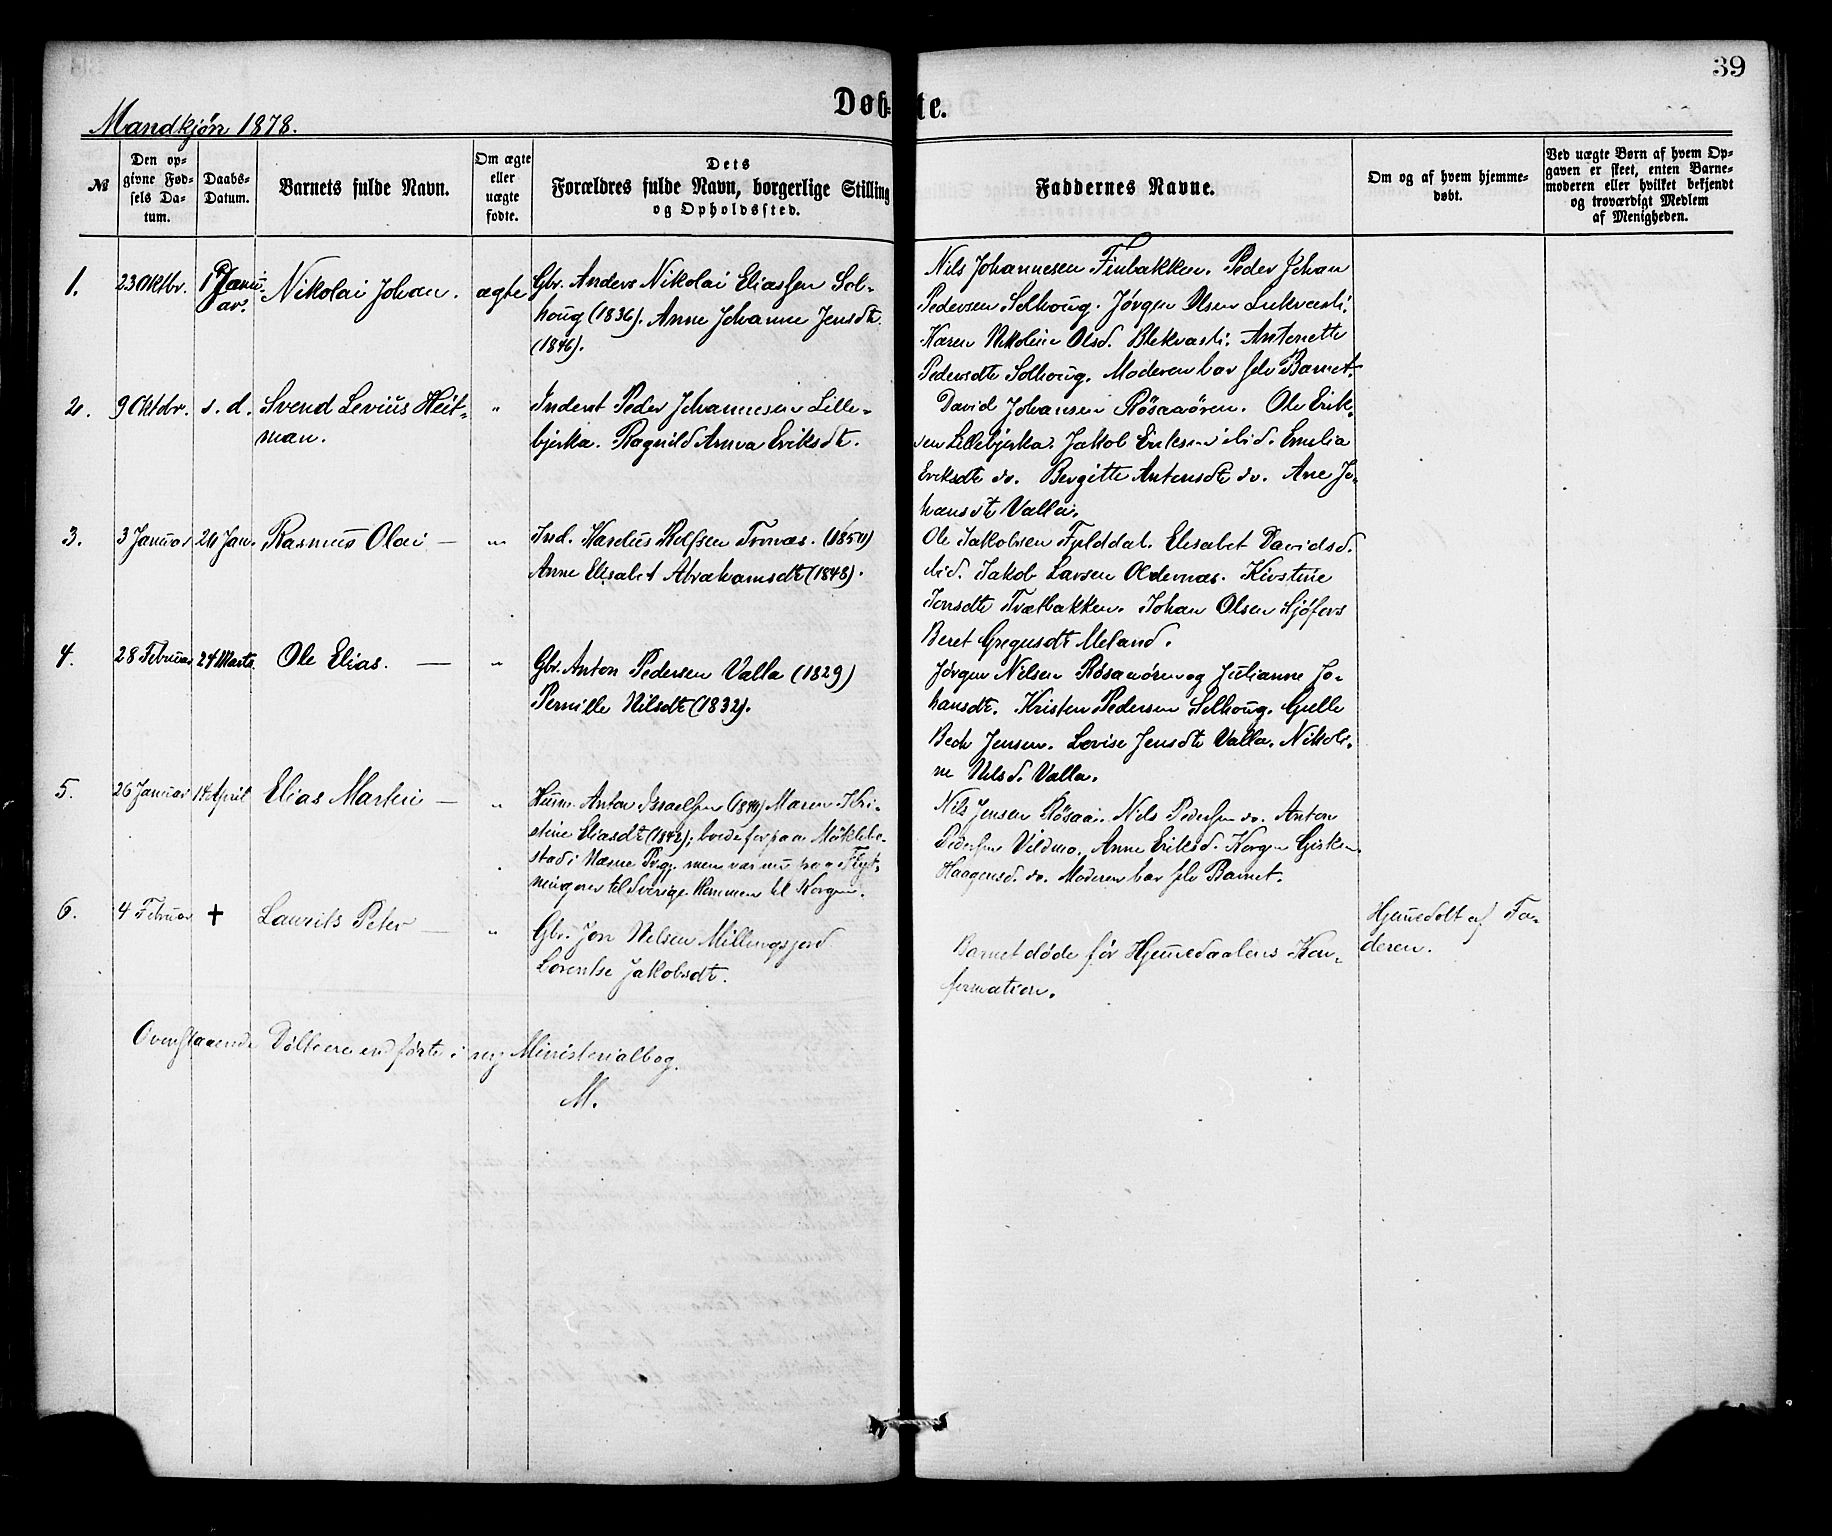 39
Døbte.
Mandkjøn 1878.
№
Den opgivne Fødsels Datum.
Daabs-Datum.
Barnets fulde Navn.
Om ægte eller uægte fødte.
Dets Forældres fulde Navn, borgerlige Stilling og Opholdssted.
Faddernes Navne.
Om og af hvem hjemmedøbt.
Ved uægte Børn af hvem Opgaven er skeet, enten Barnemoderen eller hvilket bekjendt og troværdigt Medlem af Menigheden.
1.
23 Oktbr.
1 Januar.
Nikolai Johan.
ægte
Gbr. Anders Nikolai Eliassen Sol-
houg (1836). Anne Johanne Jensdt.
(1846).
Nils Johannesen Finbakken. Peder Johan
Pedersen Solhoug. Jørgen Olsen
Karen Nikoline Olsd. Antonette
Pedersdt Solhoug. Moderen bar selv Barnet.
2.
9 Oktbr.
s. d.
Svend Levius Heit-
man.
"
Inderst Peder Johannesen Lille-
bjerka. Ragnild Anna Eriksdt.
David Johansen Røsaaøren. Ole Erik-
sen Lillebjerka. Jakob Eriksen ibid. Emelia
Eriksdt do. Bergitte Antonsdt do. Ane Jo-
hansdt Valla.
3.
3 Januar
20 Jan.
Rasmus Olai —
"
Ind. Tronæs. (1850)
Anne Elisabet Abrahamsdt (1848).
Ole Jakobsen Fjelddal. Elisabet Davidsd.
ibid. Jakob Larsen Oldernæs. Kirstine
Jonsdt Trætbakken. Johan Olsen Sjøfors
Beret Gregusdt Meland.
4.
28 Februar
24 Marts.
Ole Elias. —
"
Gbr. Anton Pedersen Valla (1829)
Pernille Nilsdt (1832).
Jørgen Nilsen Røsaaøren og Julianne Jo-
hansdt. Kristen Pedersen Solhoug. Gjelle
Bech Jensen. Lovise Jensdt Valla. Nikoli-
ne Nilsd. Valla.
5.
26 Januar
14 April
Elias Martin —
"
Husm. Anton Israelsen (1840) Maren Kri-
stine Eliasdt (1842); boede før paa Møklebo-
stad i Næsne Prgj. men var nu paa Flyt-
ning over til Sverige kommen til Korgen.
Nils Jensen Røsaai. Nils Pedersen do. Anton
Pedersen Vildmo. Anne Eriksd. Korgen Gisken
Haagensd. do. Moderen bar selv Barnet.
6.
4 Februar
✝
Laurits Peter —
"
Gbr. Jon Nilsen Millingsjord
Lorentse Jakobsdt.
Barnet døde før Hjemmedaabens Kon-
firmation.
Hjemmedøbt af Fa-
deren.
Ovenstaaende Døbte ere indførte i ny Ministerialbog.
M.